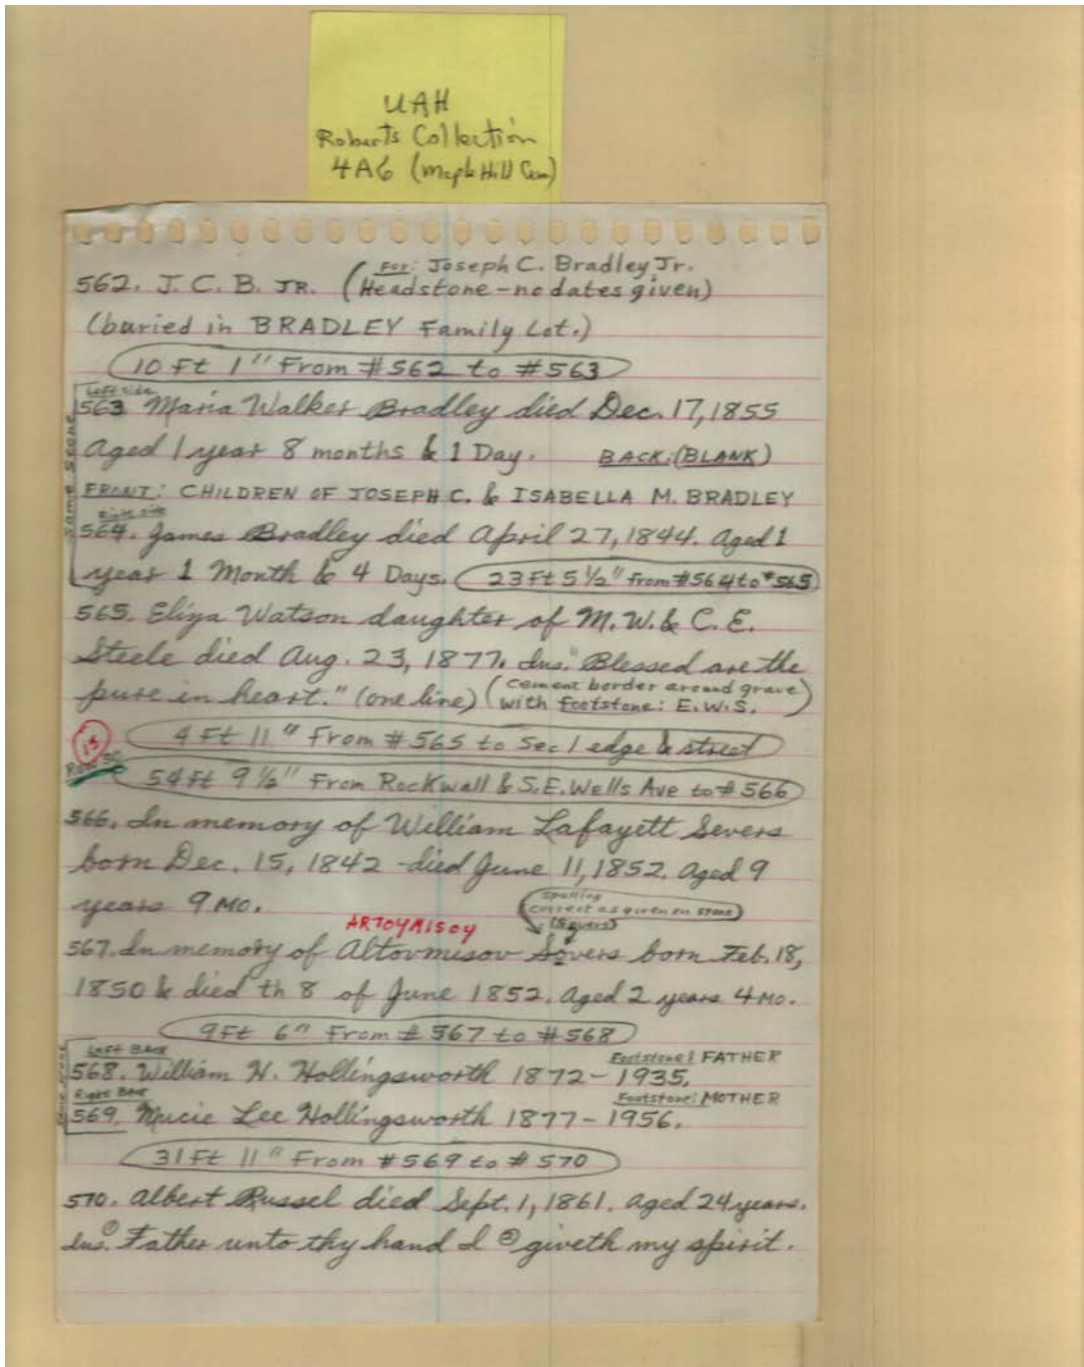 UAH
Roberts Collection
4A6 (Maple Hill Cem)
For: Joseph C. Bradley Jr.
562. J. C. B. JR. (Headstone - no dates given)
(buried in BRADLEY Family Lot.)
10 Ft 1" From #562 to #563
Same Stone
Left side
563 Maria Walker Bradley died Dec. 17, 1855
Aged 1 year 8 months & 1 Day. BACK: (BLANK)
FRONT: CHILDREN OF JOSEPH C. & ISABELLA M. BRADLEY
Right side
564. James Bradley died April 27, 1844. Aged 1
year 1 Month & 4 Days. 23 Ft 5 1/2" From #564 to #565
565. Eliza Watson daughter of M. W. & C. E.
Steele died Aug. 23, 1877. Ins. "Blessed are the
pure in heart." (one line) (cement border around grave
with footstone: E.W.S.)
15
4 Ft 11" From #565 to Sec 1 edge & street
Row
54 Ft 9 1/2" From Rockwall & S.E. Wells Ave to #566
566. In memory of William Lafayett Severs
born Dec. 15, 1842 - died June 11, 1852. Aged 9
years 9 MO.
Spelling
correct as given on stone
(Severs)
ARTOYMISOY
567. In memory of Altovmisov Sovers born Feb. 18,
1850 & died th 8 of June 1852. Aged 2 years 4 MO.
9 Ft 6" From #567 to #568
Same Stone
Left BACK
Footstone: FATHER
568. William H. Hollingsworth 1872 - 1935.
Right BACK
Footstone: MOTHER
569. Mucie Lee Hollingsworth 1877 - 1956.
31 Ft 11" From #569 to #570
570. Albert Russel died Sept. 1, 1861. Aged 24 years.
Ins. ① Father unto thy hand I ② giveth my spirit.